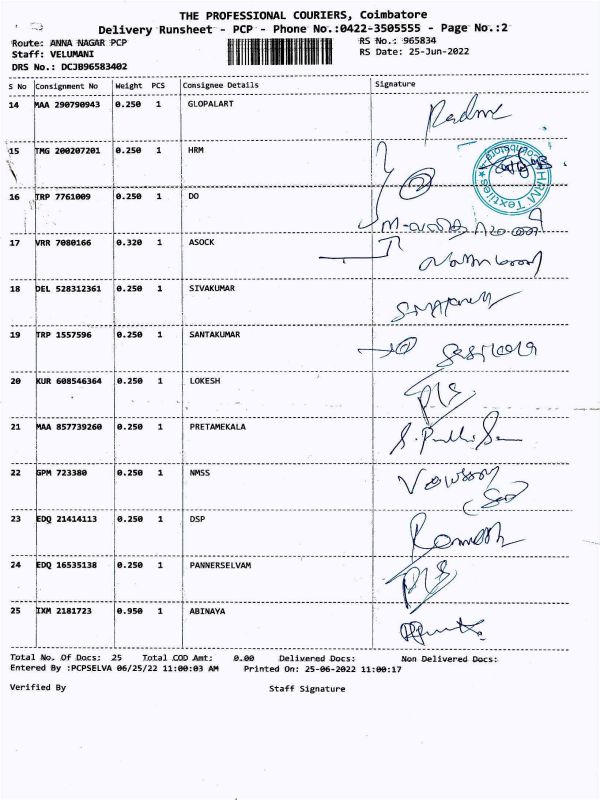 THE PROFESSIONAL COURIERS, Coimbatore
Delivery Runsheet - PCP - Phone No.:0422-3505555 - Page No.:2
Route: ANNA NAGAR PCP
RS No.: 965834
Staff: VELUMANI
RS Date: 25-Jun-2022
DRS No.: DCJB96583402
S No Consignment No Weight PCS Consignee Details Signature
14 MAA 290790943 0.250 1 GLOPALART
15 TMG 200207201 0.250 1 HRM
HRM Textiles
16 TRP 7761009 0.250 1 DO
17 VRR 7080166 0.320 1 ASOCK
18 DEL 528312361 0.250 1 SIVAKUMAR
19 TRP 1557596 0.250 1 SANTAKUMAR
20 KUR 608546364 0.250 1 LOKESH
21 MAA 857739260 0.250 1 PRETAMEKALA
22 GPM 723380 0.250 1 NMSS
23 EDQ 21414113 0.250 1 DSP
24 EDQ 16535138 0.250 1 PANNERSELVAM
25 IXM 2181723 0.950 1 ABINAYA
Total No. Of Docs: 25 Total COD Amt: 0.00 Delivered Docs: Non Delivered Docs:
Entered By :PCPSELVA 06/25/22 11:00:03 AM Printed On: 25-06-2022 11:00:17
Verified By Staff Signature